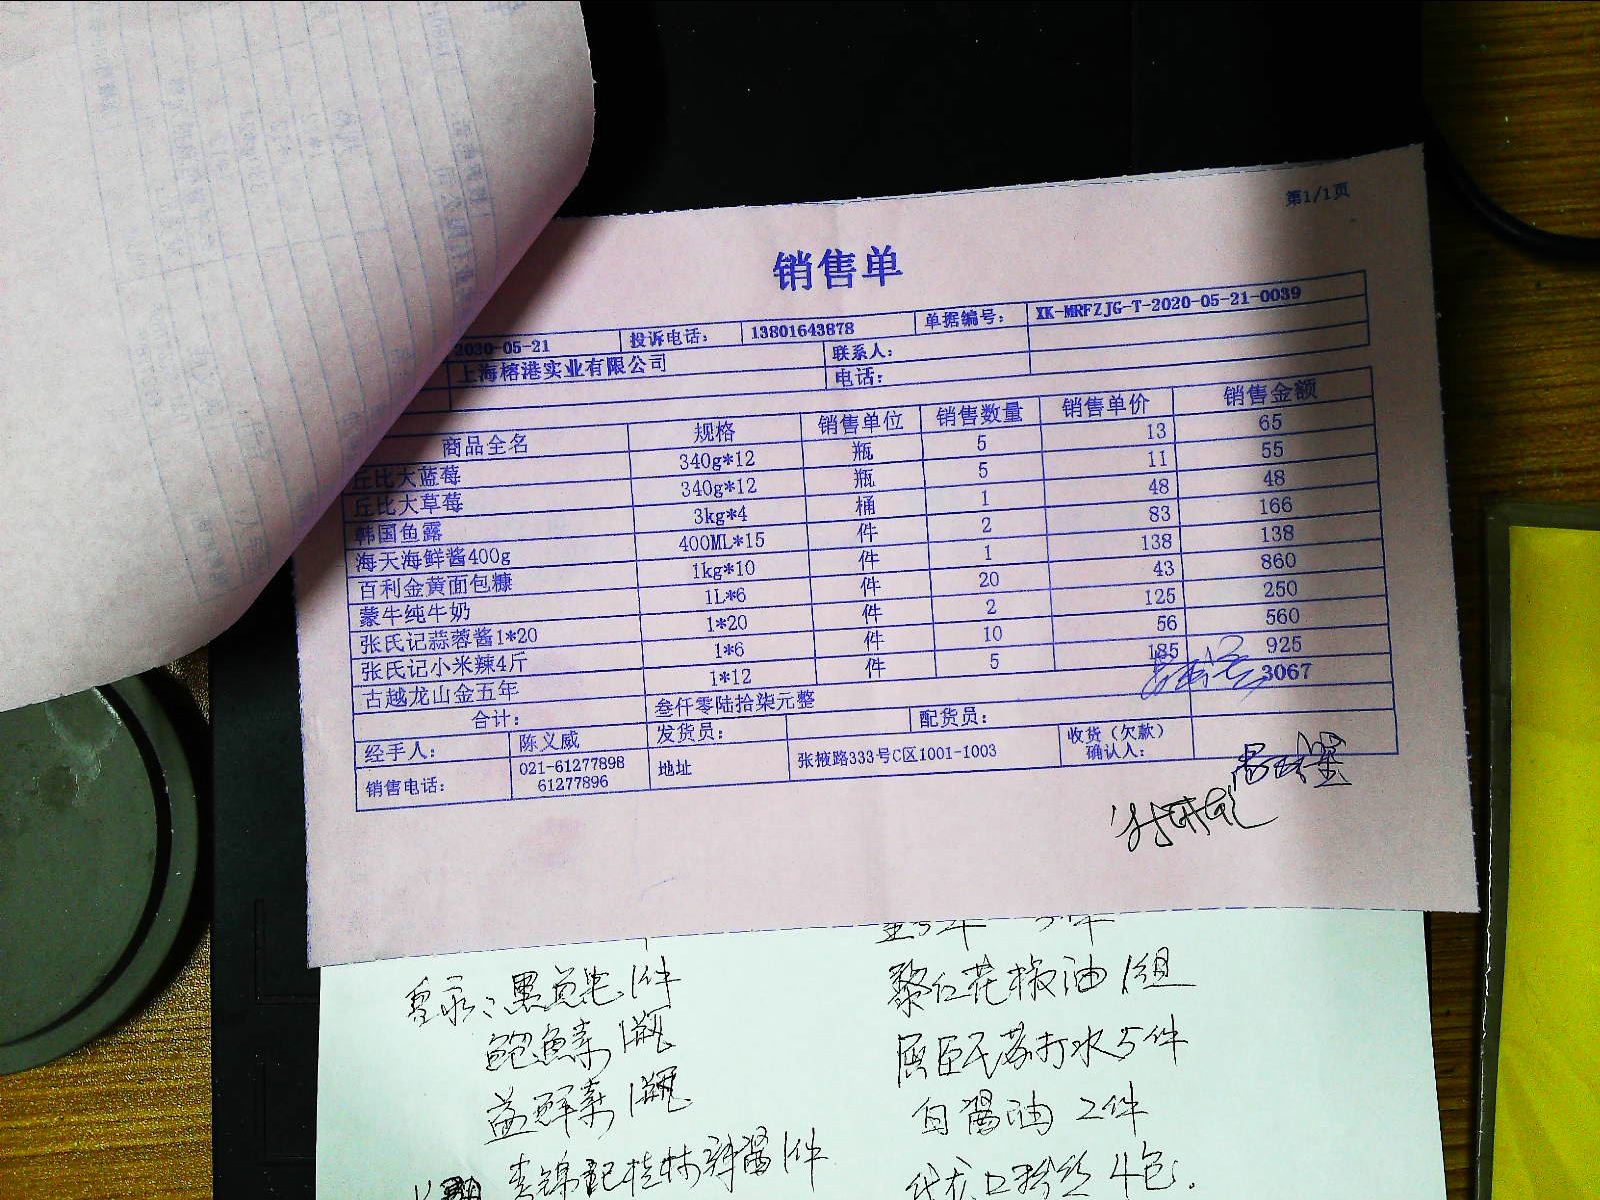 第1/1页
销售单
2020-05-21 投诉电话: 13801643878 单据编号: XK-MRFZJG-T-2020-05-21-0039
上海榕港实业有限公司 联系人:
电话:
商品全名 规格 销售单位 销售数量 销售单价 销售金额
丘比大蓝莓 340g*12 瓶 5 13 65
丘比大草莓 340g*12 瓶 5 11 55
韩国鱼露 3kg*4 桶 1 48 48
海天海鲜酱400g 400ML*15 件 2 83 166
百利金黄面包糠 1kg*10 件 1 138 138
蒙牛纯牛奶 1L*6 件 20 43 860
张氏记蒜蓉酱1*20 1*20 件 2 125 250
张氏记小米辣4斤 1*6 件 10 56 560
古越龙山金五年 1*12 件 5 185 925
合计: 叁仟零陆拾柒元整 3067
经手人: 陈义威 发货员: 配货员: 收货（欠款）确认人:
销售电话: 021-61277898 61277896 地址 张掖路333号C区1001-1003
金5年 5件
黑鱼 1件
黎红花椒油 1组
鲍鱼素 1瓶
屈臣氏苏打水5件
益鲜素 1瓶
白酱油 2件
李锦记桂林辣酱1件
龙口粉丝 4包.